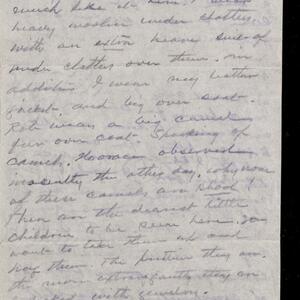 much like it here. I wear
heavy woolen under clothes
with an extra heavy suit of
under clothes over them. In
addition I wear my leather
jacket and big over coat.
Rob wears a big camel
fur over coat. Speaking of
camels, Horace observed
innocently the other day, why none
of these camels are blood!
There are the dearest little
children to be seen here. You
want to take them up and
hug them. The prettier they are
the more extravagantly they are
with jewelry.